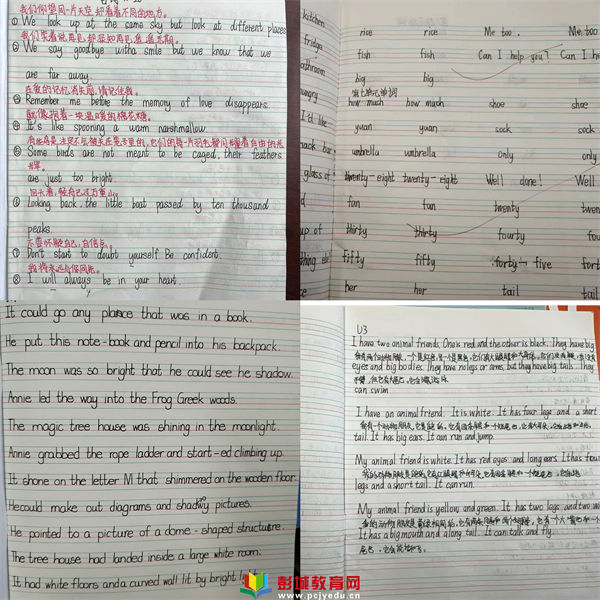 我们仰望同一片天空却看着不同的地方。
① We look up at the same sky but look at different places
我们笑着说再见却深知再见遥遥无期。
② We say goodbye with a smile but we know that we
are far away.
在爱的记忆消失前,请记住我。
③ Remember me before the memory of love disappears.
就像挖着一块温暖的棉花糖。
④ It's like spooning a warm marshmallow.
⑤ Some birds are not meant to be caged, their feathers
are just too bright.
⑥ Looking back, the little boat passed by ten thousand
peaks.
不要怀疑自己,自信点。
⑦ Don't start to doubt yourself. Be confident.
我将永远与你同在。
⑧ I will always be in your heart.
kitchen
fridge
athroom
ungry
I'd like
nack bar
glass of
up of
thing else
rice rice Me too. Me too
fish fish Can I help you? Can I he
big big
第七单元单词
how much how much shoe shoe
yuan yuan sock sock
umbrella umbrella only only
twenty-eight twenty-eight Well done! Well
fun fun twenty twen
thirty thirty fourty four
fifty fifty forty-five fort
her her tail tail
It could go any place that was in a book.
He put this note-book and pencil into his backpack.
The moon was so bright that he could see he shadow.
Annie led the way into the Frog Greek woods.
The magic tree house was shining in the moonlight.
Annie grabbed the rope ladder and start-ed climbing up.
It shone on the letter M that shimmered on the wooden floor.
He could make out diagrams and shadowy pictures.
He pointed to a picture of a dome-shaped structure.
The tree house had landed inside a large white room.
It had white floors and a curved wall lit by bright
U3
I have two animal friends. One is red and the other is black. They have big
eyes and big bodies. They have no legs or arms, but they have big tails. They
can swim
I have an animal friend. It is white. It has four legs and a short
tail. It has big ears. It can run and jump.
My animal friend is white. It has red eyes and long ears. It has four
legs and a short tail. It can run.
My animal friend is yellow and green. It has two legs and two wi
It has a big mouth and along tail. It can talk and fly.
彭城教育网
www.pcjyedu.cn